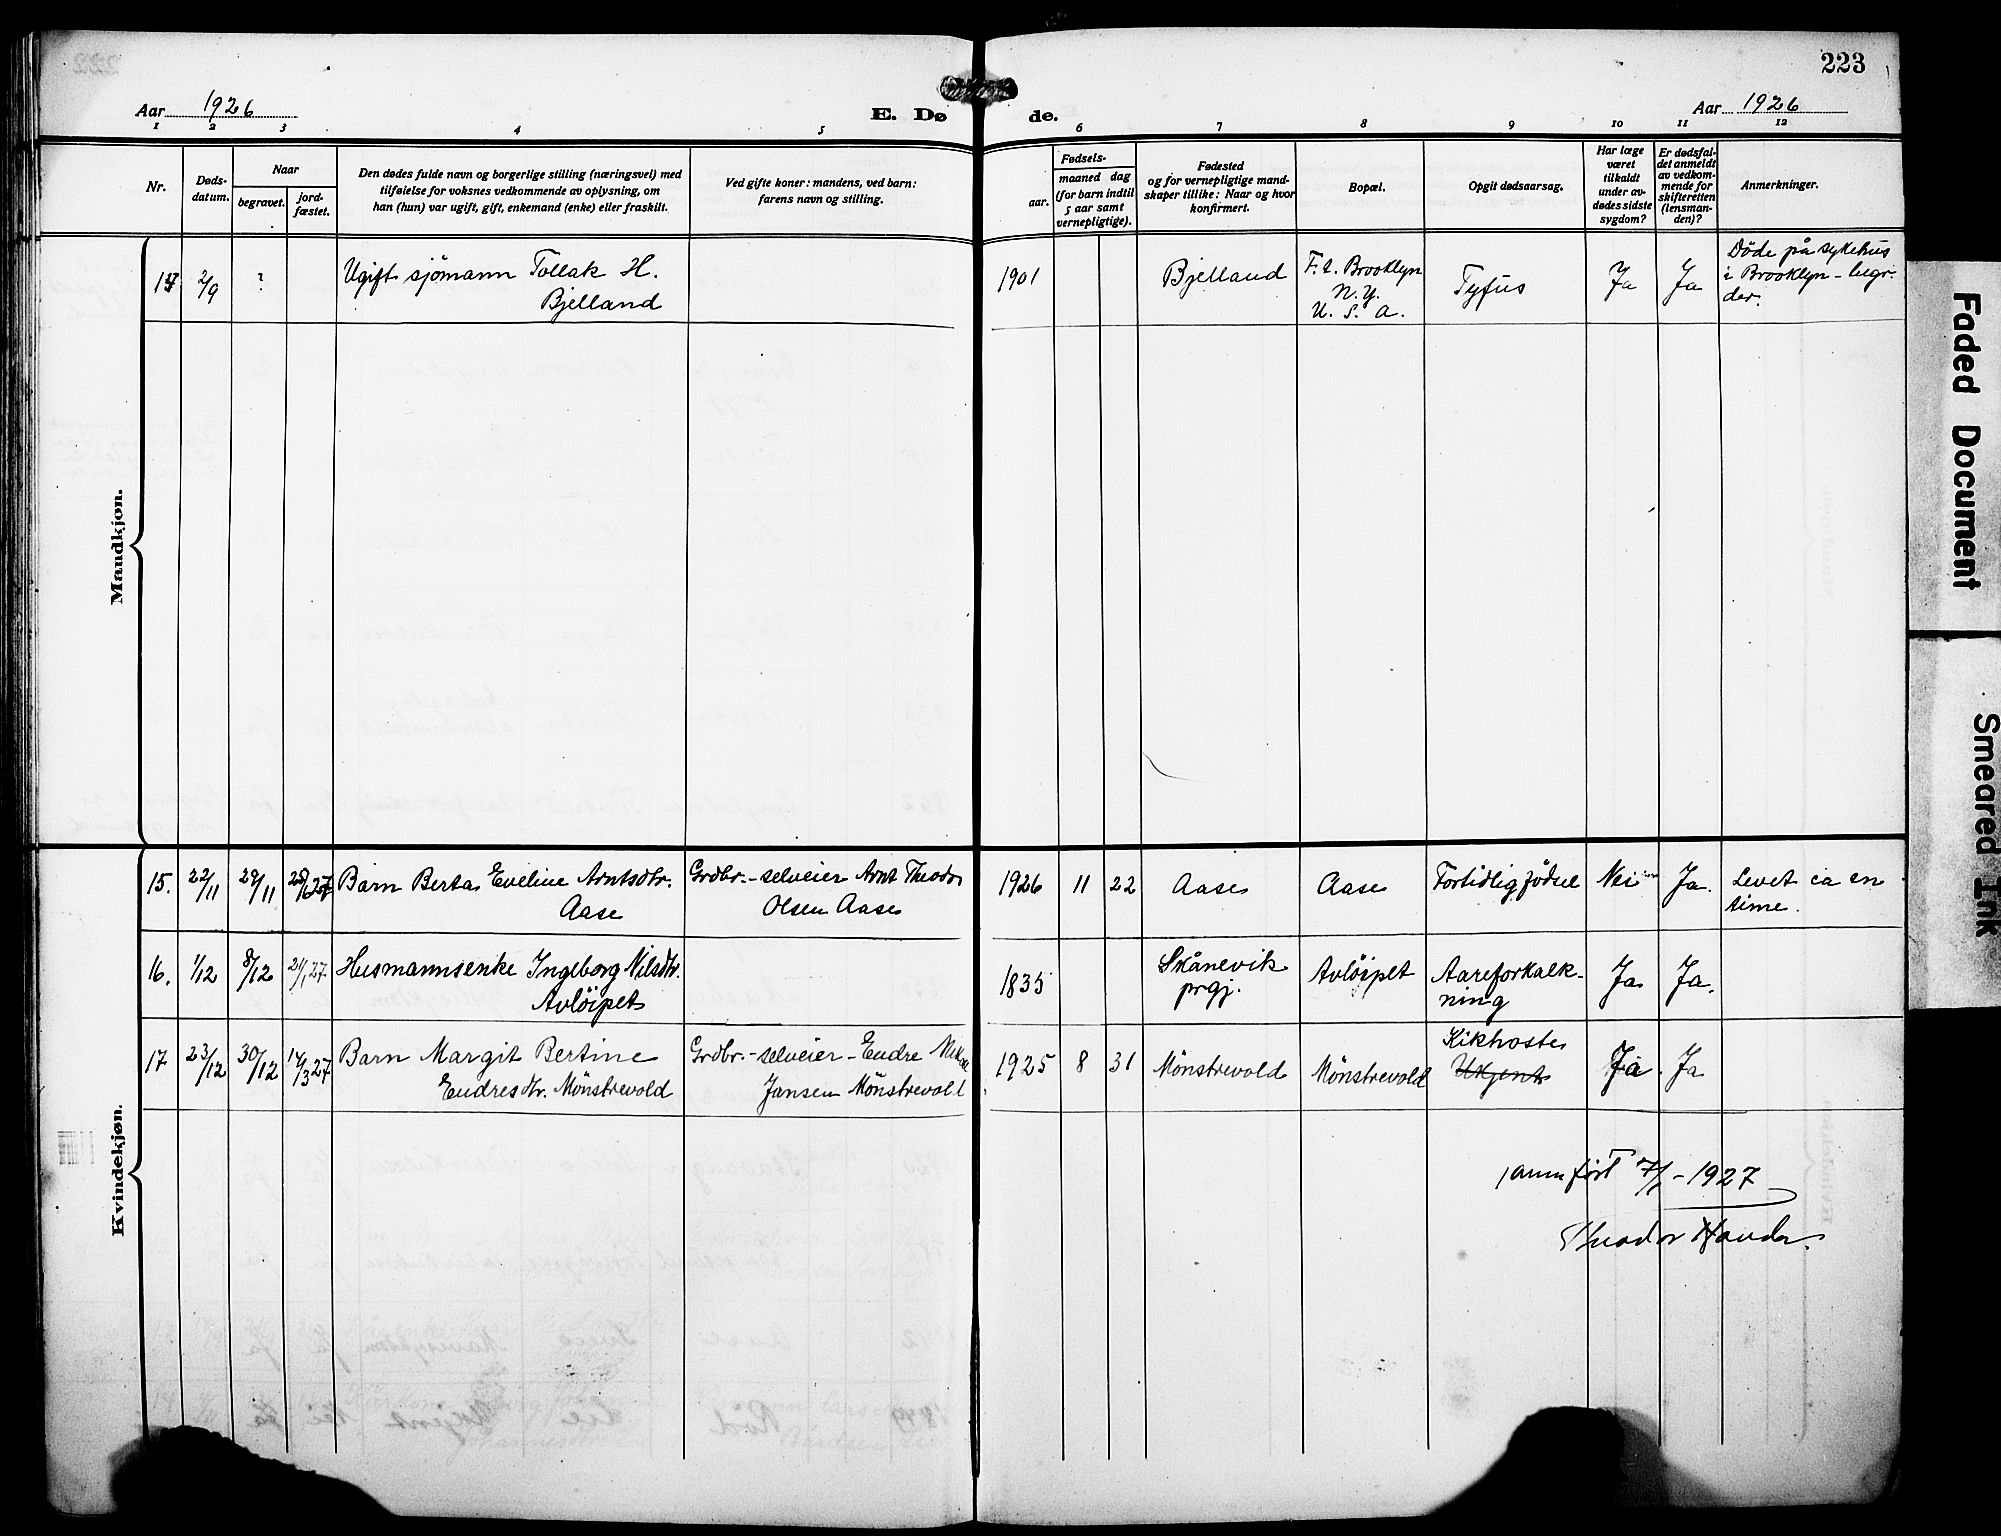 223
Aar 1926
E. Dø
de.
Aar 1926
1 2 3 4 5 6 7 8 9 10 11 12
Nr.
Døds-
datum.
Naar
begravet.
jord-
fæstet.
Den dødes fulde navn og borgerlige stilling (næringsvei) med
tilføielse for voksnes vedkommende av oplysning, om
han (hun) var ugift, gift, enkemand (enke) eller fraskilt.
Ved gifte koner: mandens, ved barn:
farens navn og stilling.
Fødsels-
aar.
maaned dag
(for barn indtil
5 aar samt
vernepligtige).
Fødested
og for vernepligtige mand-
skaper tillike: Naar og hvor
konfirmert.
Bopæl.
Opgit dødsaarsag.
Har læge
været
tilkaldt
under av-
dødes sidste
sygdom?
Er dødsfal-
det anmeldt
av vedkom-
mende for
skifteretten
(lensman-
den)?
Anmerkninger.
Mandkjøn.
2/9
?
Ugift sjömann Tollak H.
Bjelland
1901
Bjelland
F. t. Brooklyn
N. Y.
U. S. A.
Tyfus
Ja
Ja
Döde på sykehus
i Brooklyn
Kvindekjøn.
15.
22/11
29/11
Barn Berta Eveline Arntsdtr.
Aase
Grdbr.-selveier Arnt Theodor
Olsen Aase
1926
11
22
Aase
Aase
Fortidlig födsel
Nei
Ja.
Levet ca en
time.
16.
1/12
8/12
Husmannsenke Ingeborg Nilsdtr.
Avlöipet
1835
Skånevik
prgj.
Avlöipet
Aareforkalk-
ning
Ja
Ja.
17
23/12
30/12
14/3 27
Barn Margit Bertine
Endresdtr. Mönstrevold
Grdbr.-selveier - Endre
Jansen Mönstrevold
1925
8
31
Mönstrevold
Mönstrevold
Kikhoste
Ukjent
Ja
Ja
- 1927
Faded Document
Smeared Ink